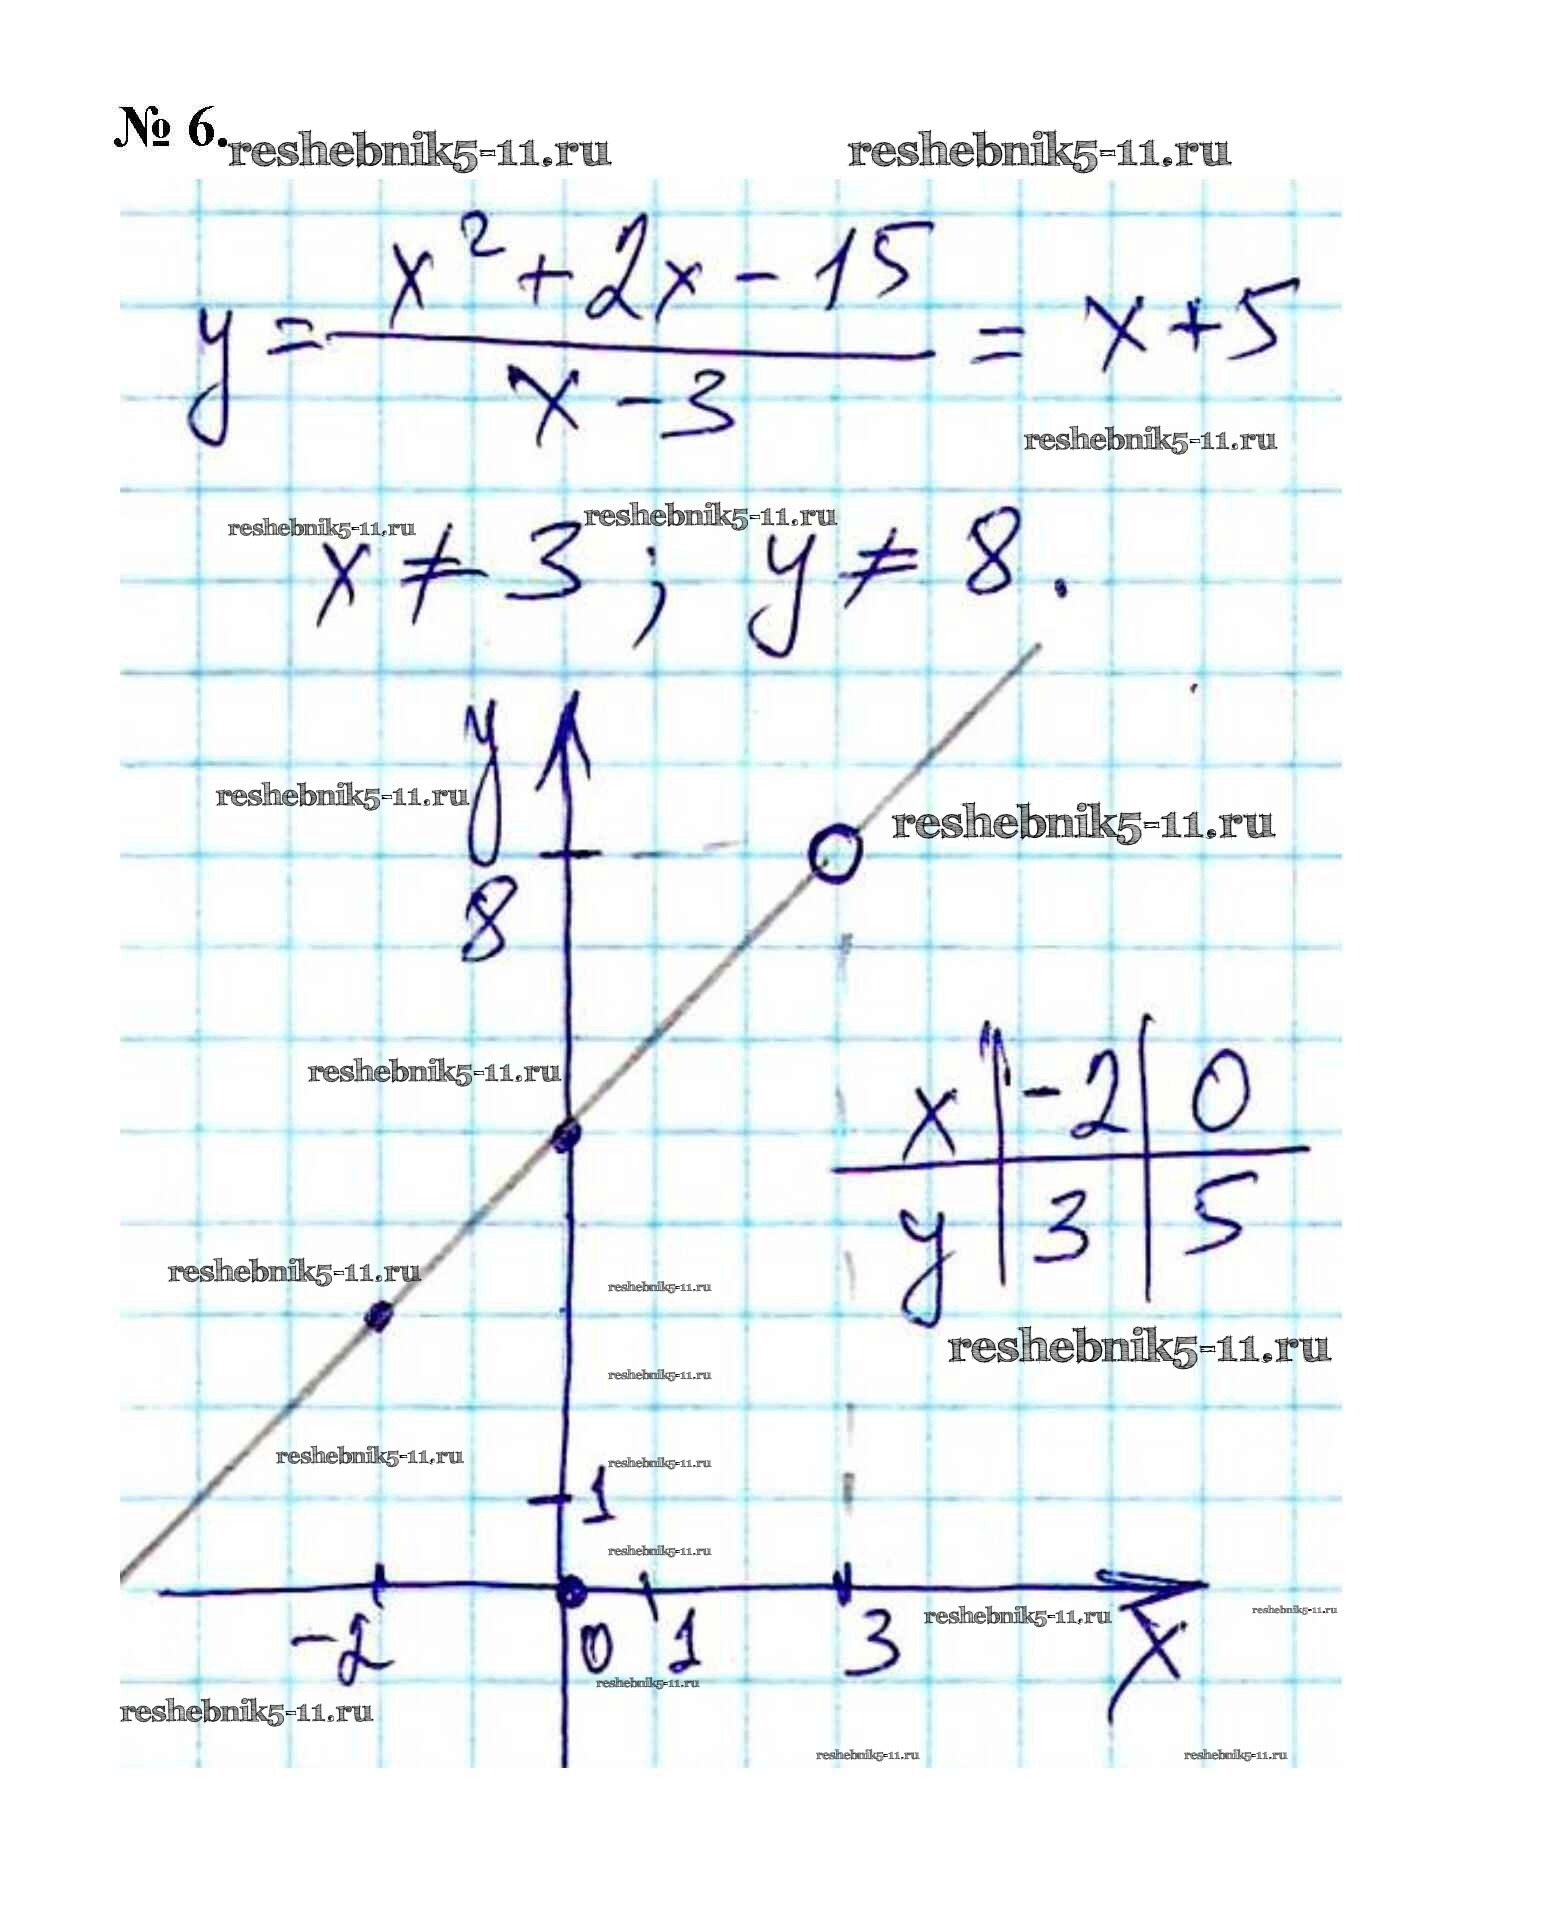 № 6.
reshebnik5-11.ru reshebnik5-11.ru
y = (x² + 2x - 15) / (x - 3) = x + 5
reshebnik5-11.ru
reshebnik5-11.ru reshebnik5-11.ru
x ≠ 3 ; y ≠ 8 .
y
reshebnik5-11.ru reshebnik5-11.ru
8
reshebnik5-11.ru
x | -2 | 0
y | 3 | 5
reshebnik5-11.ru reshebnik5-11.ru
reshebnik5-11.ru
reshebnik5-11.ru
reshebnik5-11.ru reshebnik5-11.ru
1
reshebnik5-11.ru
reshebnik5-11.ru reshebnik5-11.ru
-2 0 1 3 x
reshebnik5-11.ru
reshebnik5-11.ru
reshebnik5-11.ru reshebnik5-11.ru